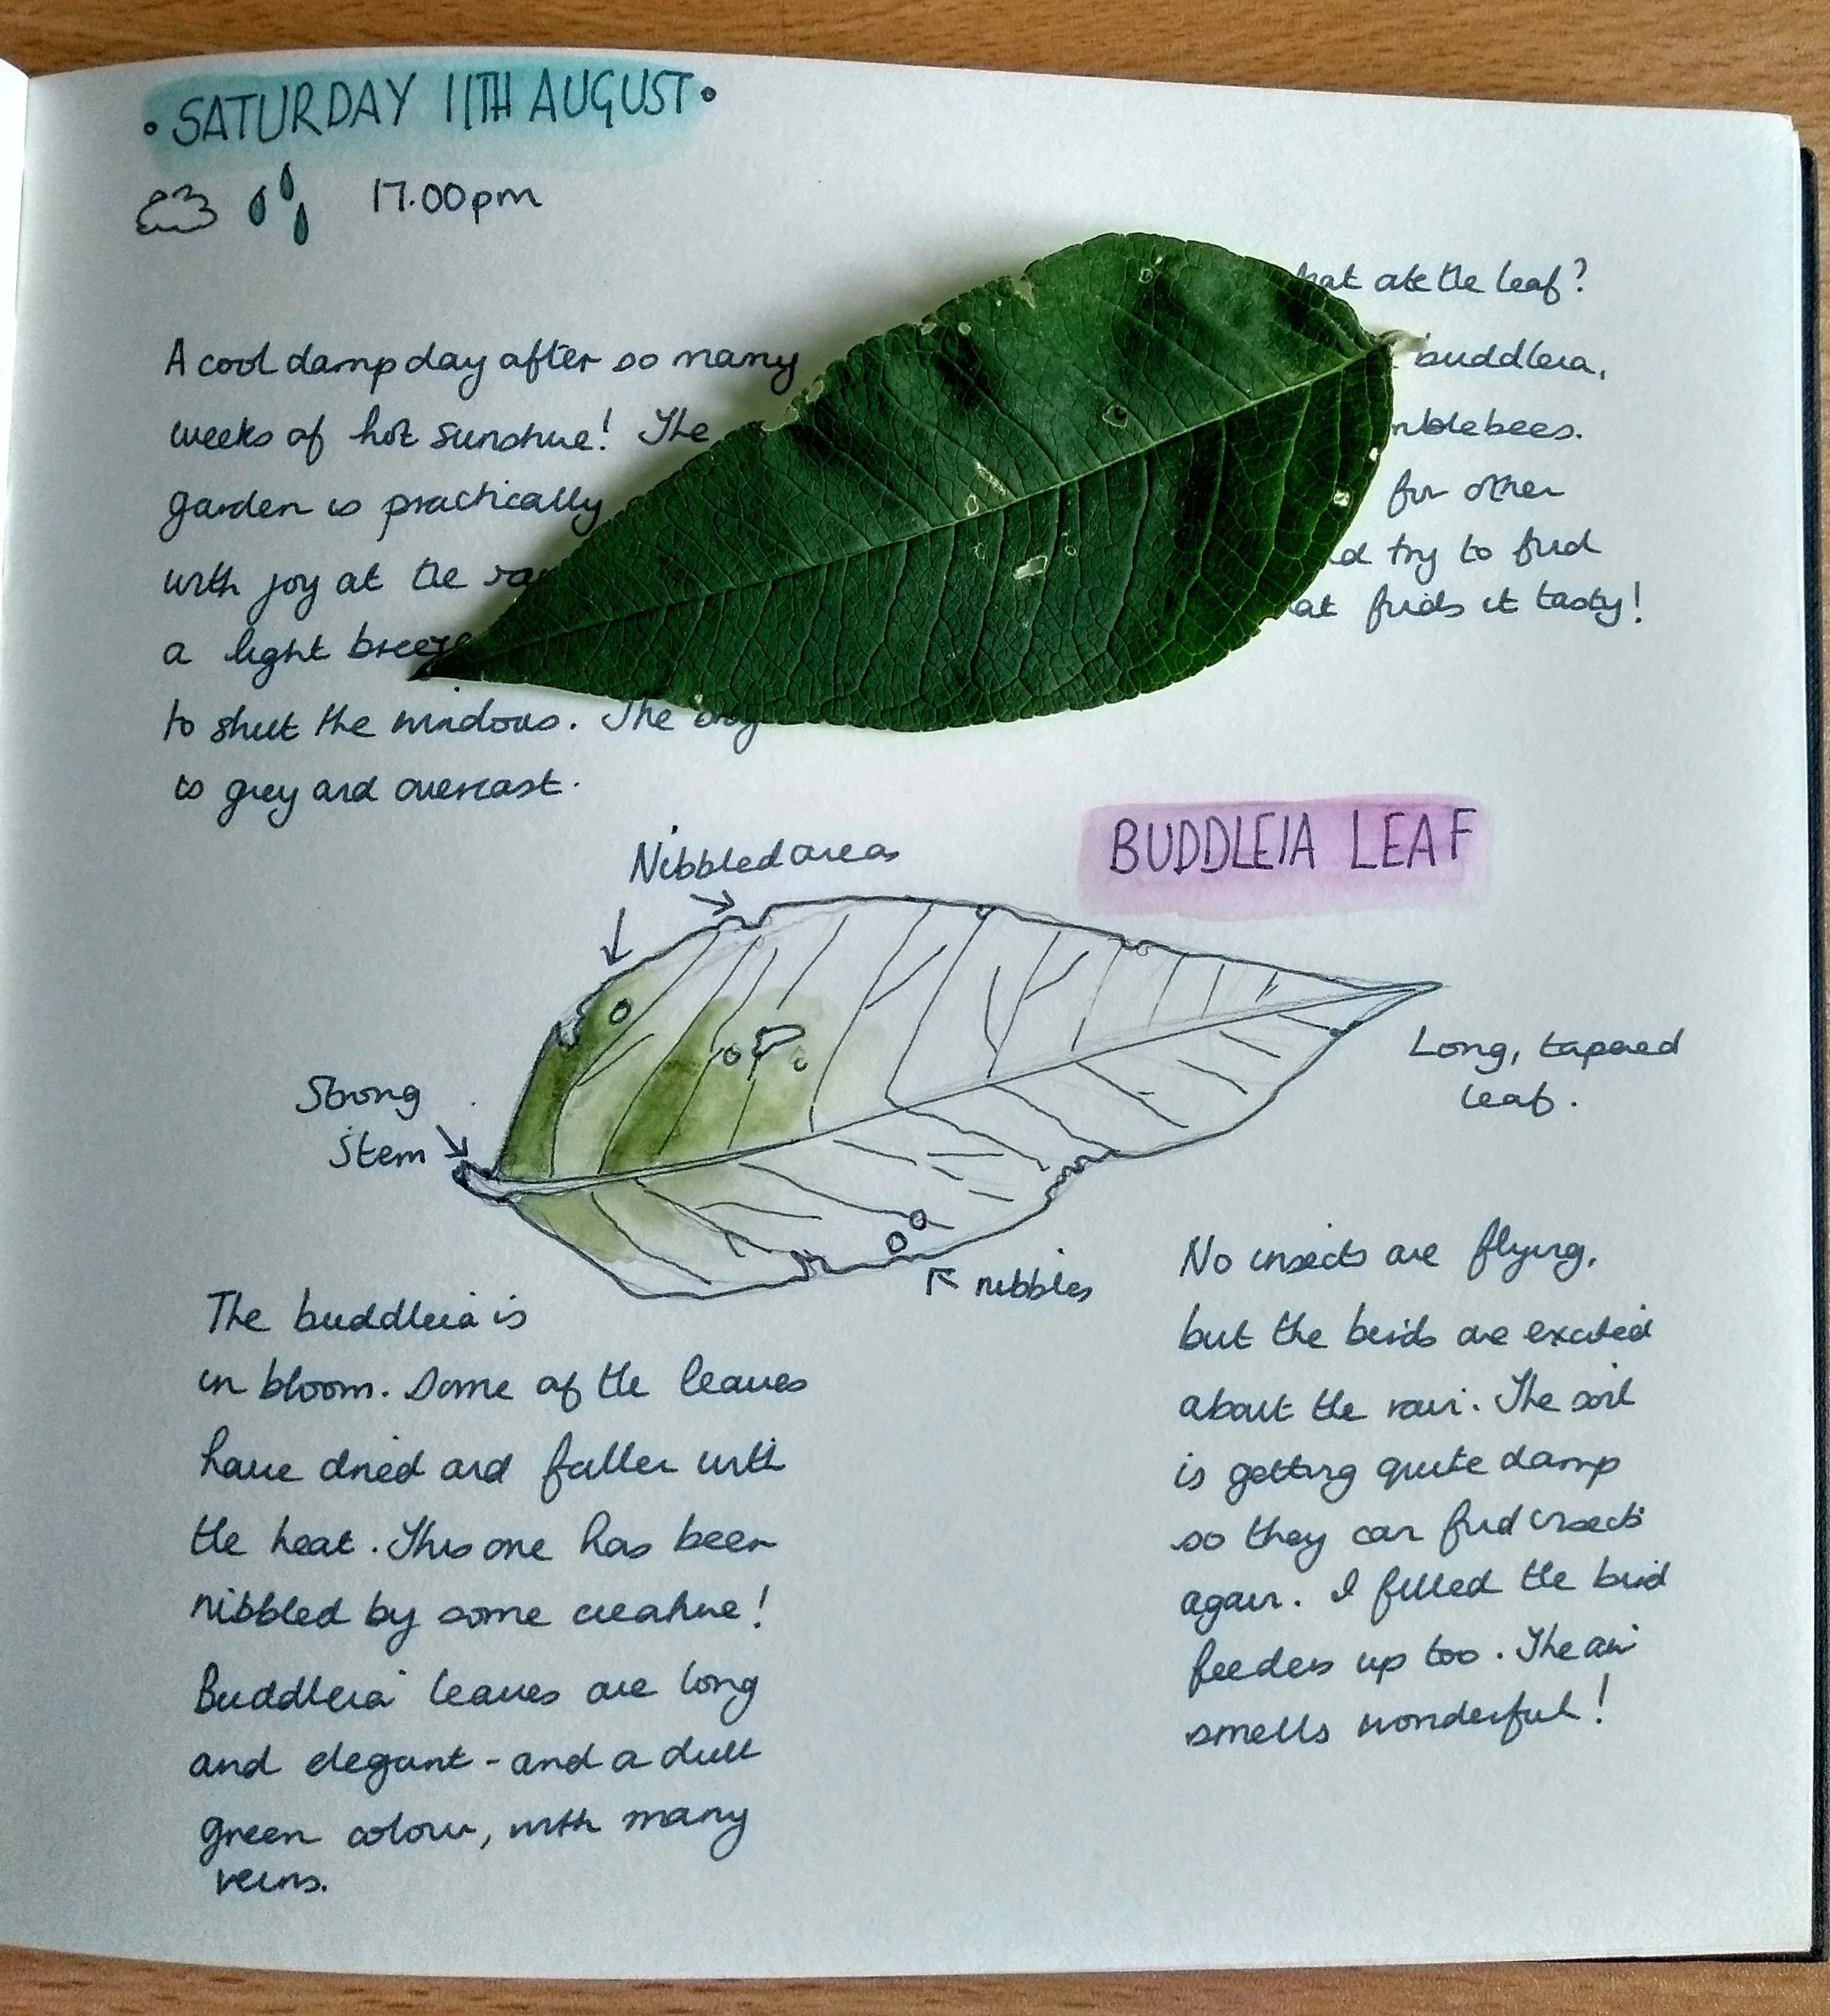 • SATURDAY 11TH AUGUST •
17.00pm
A cool damp day after so many
weeks of hot sunshine! The
garden is practically
with joy at the
a light breeze
to shut the windows. The
is grey and overcast.
ate the leaf?
buddleia,
for other
try to find
finds it tasty!
BUDDLEIA LEAF
Nibbled areas
Strong
Stem
Long, tapered
leaf.
nibbles
The buddleia is
in bloom. Some of the leaves
have dried and fallen with
the heat. This one has been
nibbled by some creature!
Buddleia leaves are long
and elegant - and a dull
green colour, with many
veins.
No insects are flying,
but the birds are excited
about the rain. The soil
is getting quite damp
so they can find insects
again. I filled the bird
feeders up too. The air
smells wonderful!